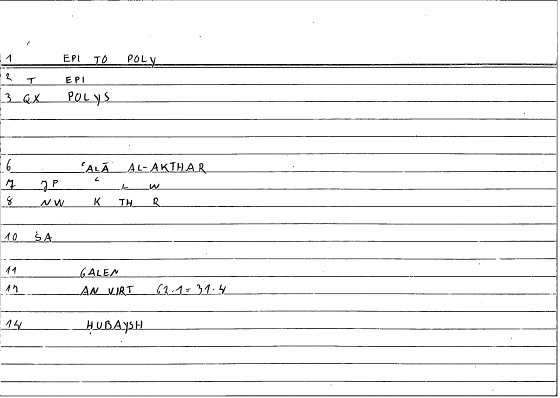 1 EPI TO POLY
2 T EPI
3 GX POLYS
6 ʿALĀ AL-AKTHAR
7 JP ʿ L W
8 NW K TH R
10 ŠA
11 GALEN
12 AN VIRT 62.1=31.4
14 ḤUBAYSH